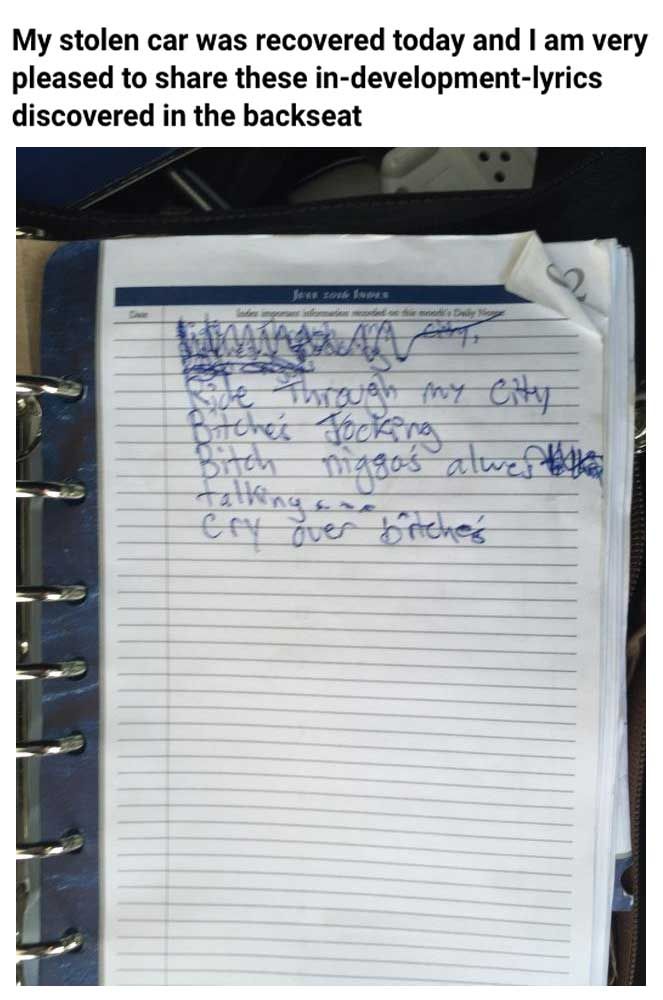 My stolen car was recovered today and I am very
pleased to share these in-development-lyrics
discovered in the backseat
June 2016 Index
Date
Index important information recorded on this month's Daily Notes
City,
Ride Through my City
Bitches Jocking
Bitch niggas alwes
talking ...
cry over bitches